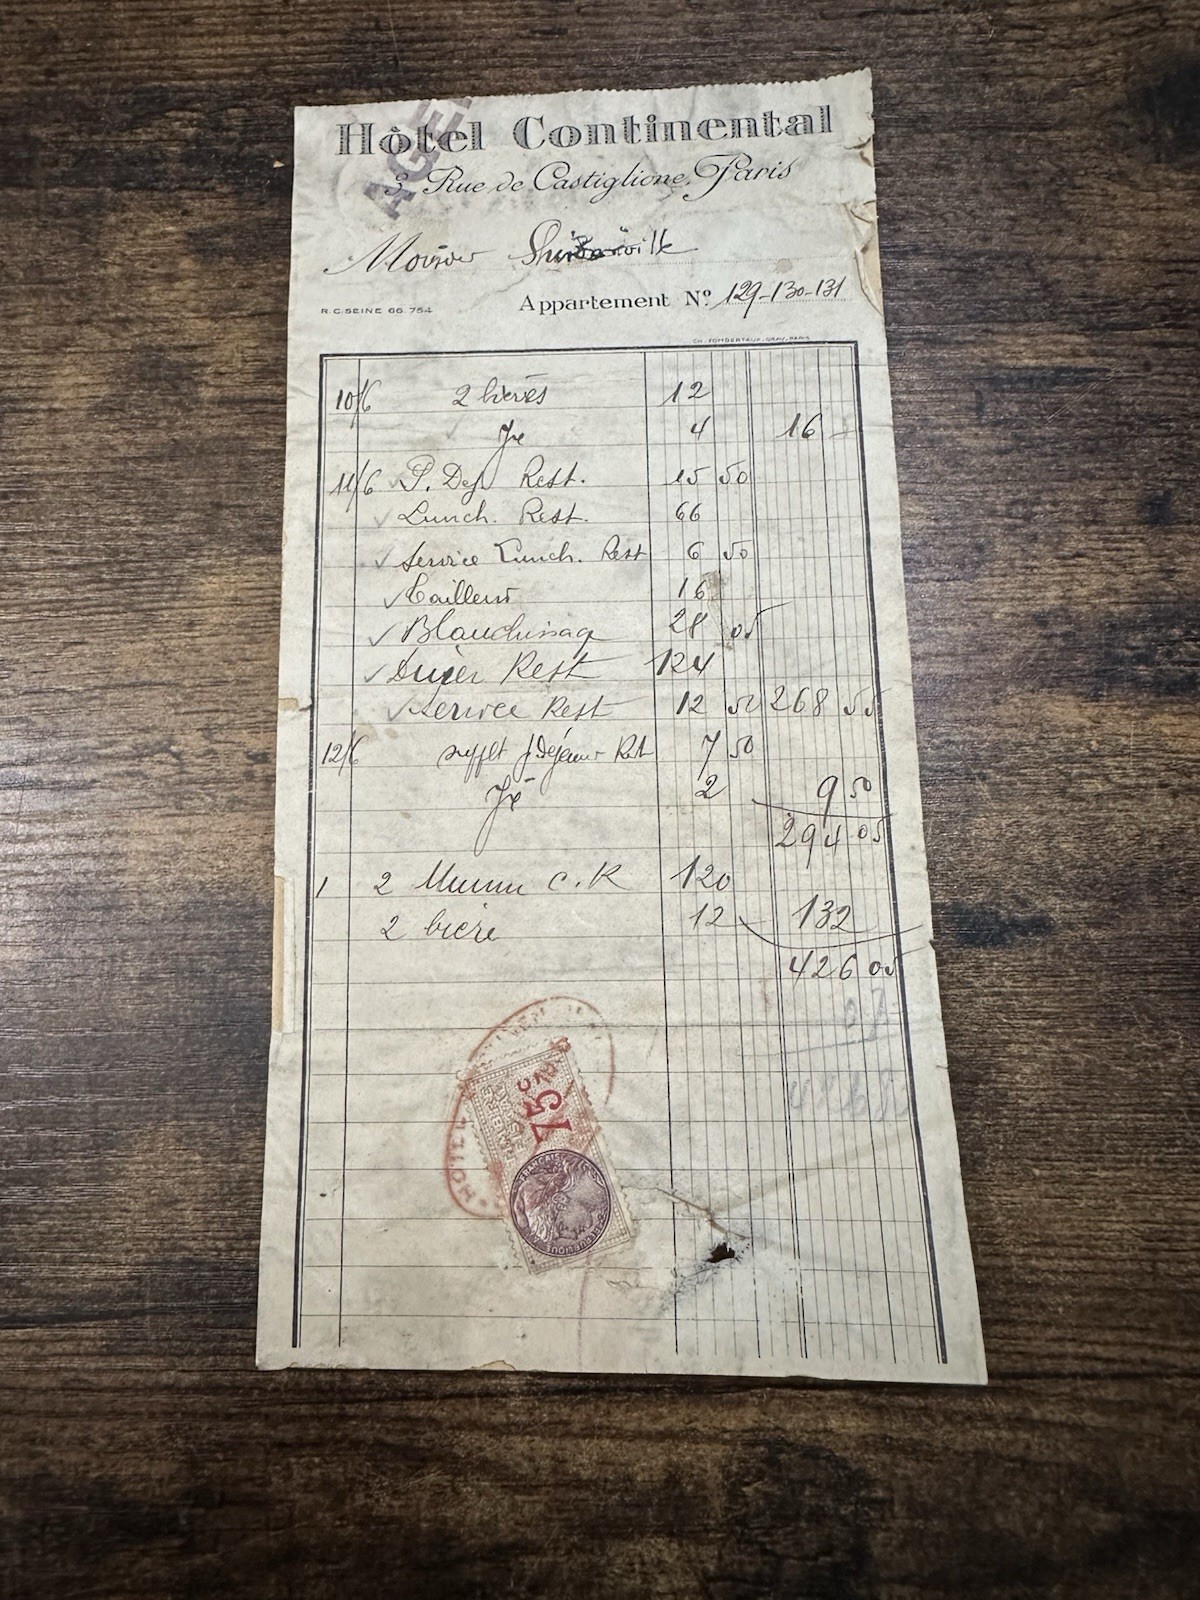 AGE
Hôtel Continental
3, Rue de Castiglione, Paris
Appartement Nº 129-130-131
R.C. SEINE 66.754
10/6 2 bières 12
4 16 -
11/6 P. Dej Rest. 15 50
Lunch. Rest. 66
Service Lunch. Rest 6 50
Tailleur 16
Blanchissag 28 05
Diner Rest 124
Service Rest 12 50 268 55
12/6 supplt Déjeuner Rest 7 50
2 9 50
294 05
1 2 Mumm C.R 120
2 bière 12 132
426 05
HOTEL
75
FRANÇAISE